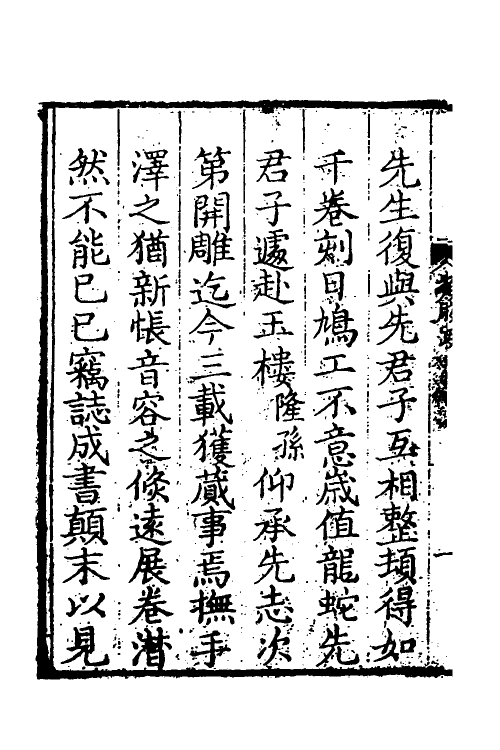 先生復與先君子互相整頓得如
干卷刻日鳩工不意歲值龍蛇先
君子遽赴玉樓隆孫仰承先志次
第開雕迄今三載獲蕆事焉撫手
澤之猶新悵音容之倐遠展卷潸
然不能已已竊誌成書顛末以見